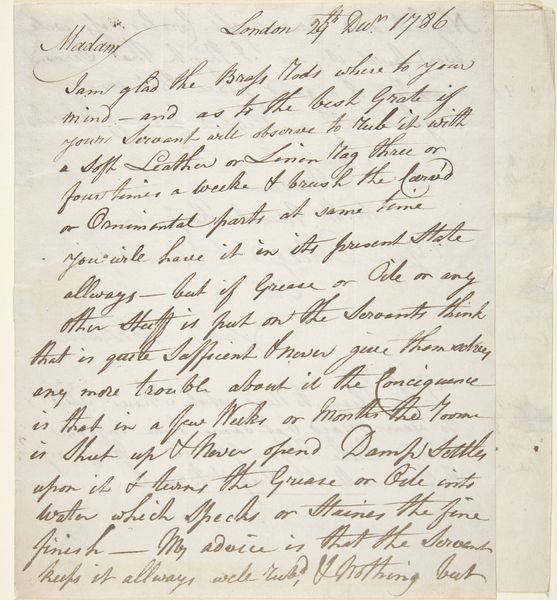 London 29th Decr 1786
Madam
I am glad the Brass Rods where to your
mind - and as to the best Grate if
your Servant will observe to rub it with
a soft Leather or Linen Rag three or
four times a weeke & brush the Carv'd
or Ornimental parts at same time
you will have it in its present State
allways - but if Grease or Oile or any
other Stuff is put on the Servants think
that is quite Sufficent & never give themselves
any more trouble about it the Conciquence
is that in a few Weeks or Months the Roome
is Shut up & Never opend Damp Settles
upon it & turns the Grease or Oile into
Water which Specks or Staines the fine
finish — My advice is that the Servant
keeps it allways well rub'd, & Nothing but